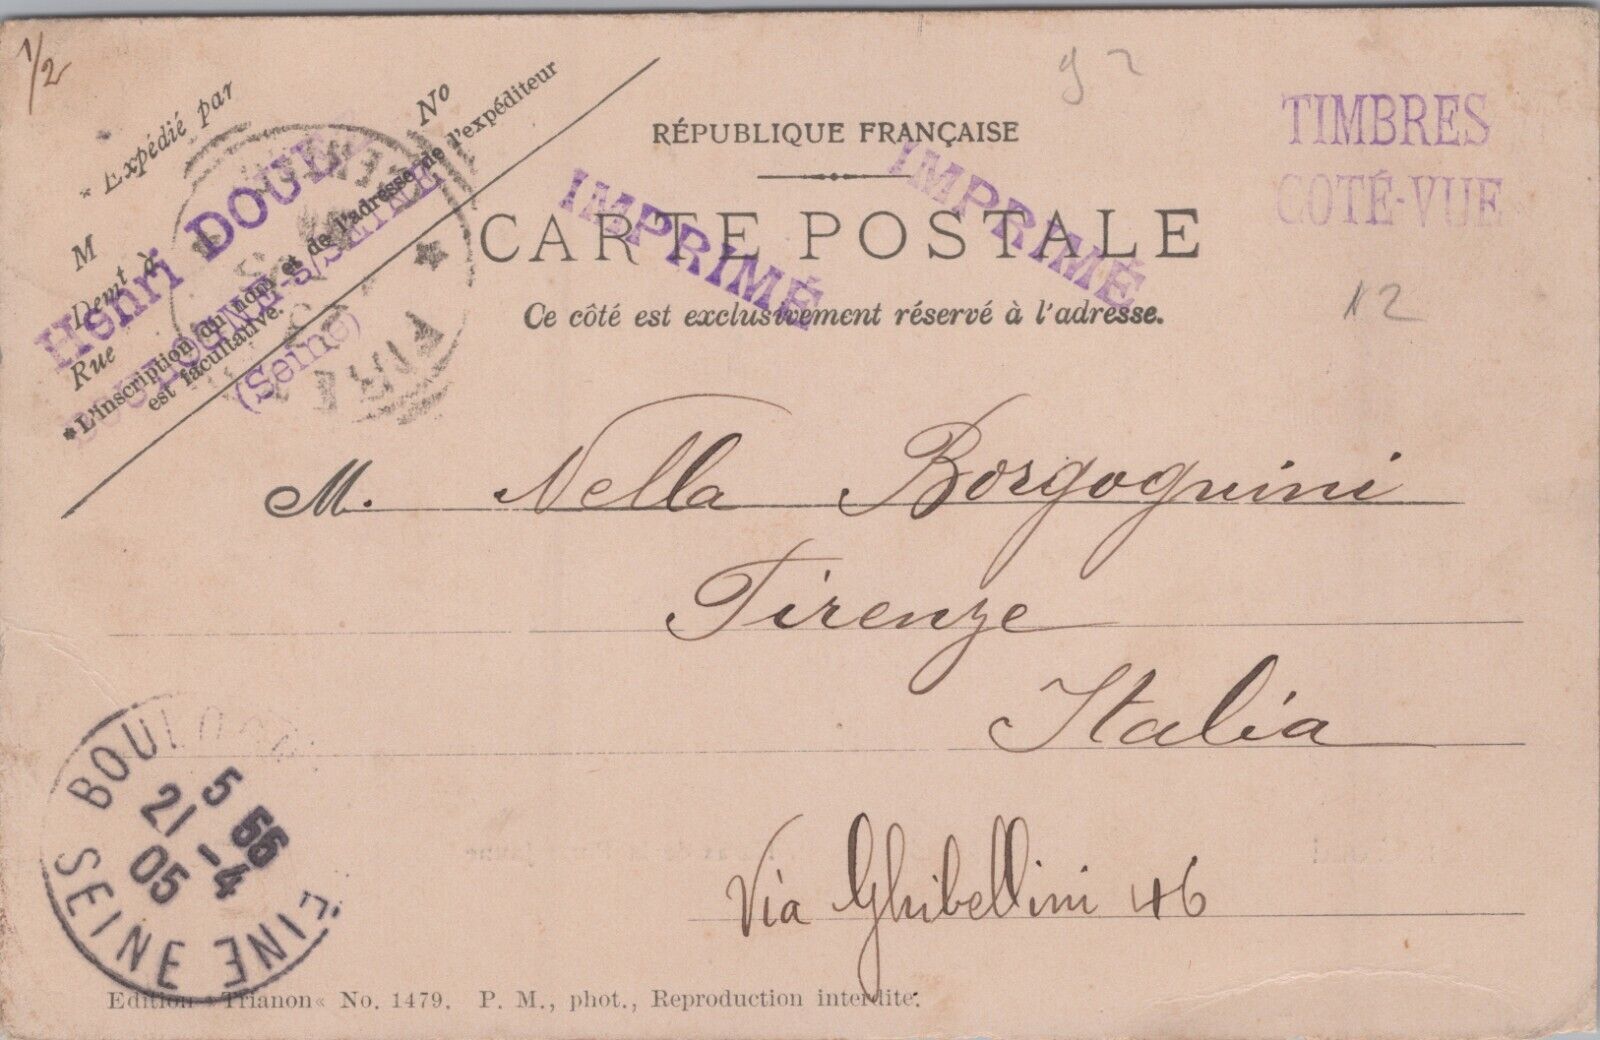 1/2
* Expédié par
No
M
Demt à
Rue
* L'inscription du nom et de l'adresse de l'expéditeur
est facultative.
Henri
BOULOGNE-s/SEINE
(Seine)
RÉPUBLIQUE FRANÇAISE
CARTE POSTALE
Ce côté est exclusivement réservé à l'adresse.
IMPRIMÉ
IMPRIMÉ
TIMBRES
COTÉ-VUE
92
12
M. Nella Borgognini
Firenze
Italia
Via Ghibellini 46
BOULOGNE
5 55
21 - 4
05
SEINE SEINE
Edition »Trianon« No. 1479. P. M., phot., Reproduction interdite.